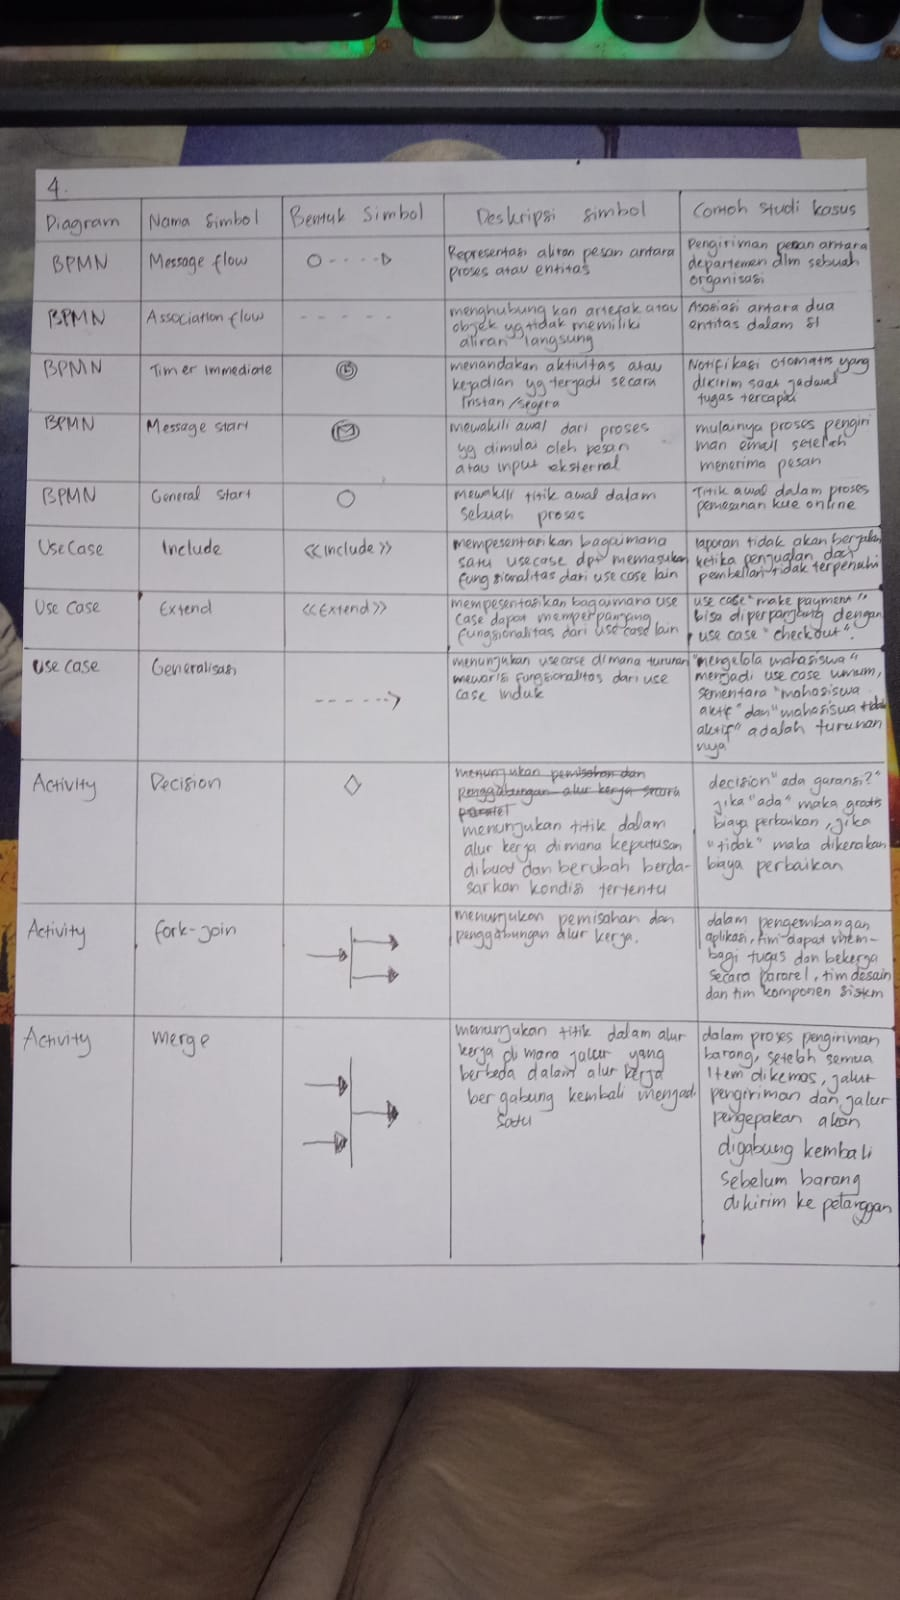 4.
Diagram
Nama Simbol
Bentuk Simbol
Deskripsi simbol
Contoh studi kasus
BPMN
Message flow
Representasi aliran pesan antara
proses atau entitas
Pengiriman pesan antara
departemen dlm sebuah
organisasi
BPMN
Association flow
menghubung kan artefak atau
objek yg tidak memiliki
aliran langsung
Asosiasi antara dua
entitas dalam SI
BPMN
Timer Immediate
menandakan aktivitas atau
kejadian yg terjadi secara
Instan/segera
Notifikasi otomatis yang
dikirim saat jadwal
tugas tercapai
BPMN
Message start
mewakili awal dari proses
yg dimulai oleh pesan
atau input eksternal
mulainya proses pengiri
man email setelah
menerima pesan
BPMN
General start
mewakili titik awal dalam
sebuah proses
Titik awal dalam proses
pemesanan kue online
UseCase
Include
<<Include>>
mempesentarikan bagaimana
satu usecase dpt memasukan
fungsionalitas dari use case lain
laporan tidak akan berjalan
ketika penjualan dan
pembelian tidak terpenuhi
Use Case
Extend
<<Extend>>
mempesentasikan bagaimana use
case dapat memperpanjang
fungsionalitas dari use case lain
use case "make payment"
bisa diperpanjang dengan
use case "checkout".
Use Case
Generalisasi
menunjukan usecase dimana turunan
mewarisi fungsionalitas dari use
case induk
"mengelola mahasiswa"
menjadi use case umum,
sementara "mahasiswa
aktif" dan "mahasiswa tidak
aktif" adalah turunan
nya
Activity
Decision
menunjukan pemisahan dan
penggabungan alur kerja secara
paralel
menunjukan titik dalam
alur kerja dimana keputusan
dibuat dan berubah berda-
sarkan kondisi tertentu
decision "ada garansi?"
jika "ada" maka gratis
biaya perbaikan, jika
"tidak" maka dikenakan
biaya perbaikan
Activity
fork-join
menunjukan pemisahan dan
penggabungan alur kerja.
dalam pengembangan
aplikasi, tim dapat mem-
bagi tugas dan bekerja
secara pararel, tim desain
dan tim komponen sistem
Activity
merge
menunjukan titik dalam alur
kerja di mana jalur yang
berbeda dalam alur kerja
bergabung kembali menjadi
satu
dalam proses pengiriman
barang, setelah semua
Item dikemas, jalur
pengiriman dan jalur
pengepakan akan
digabung kembali
sebelum barang
dikirim ke pelanggan